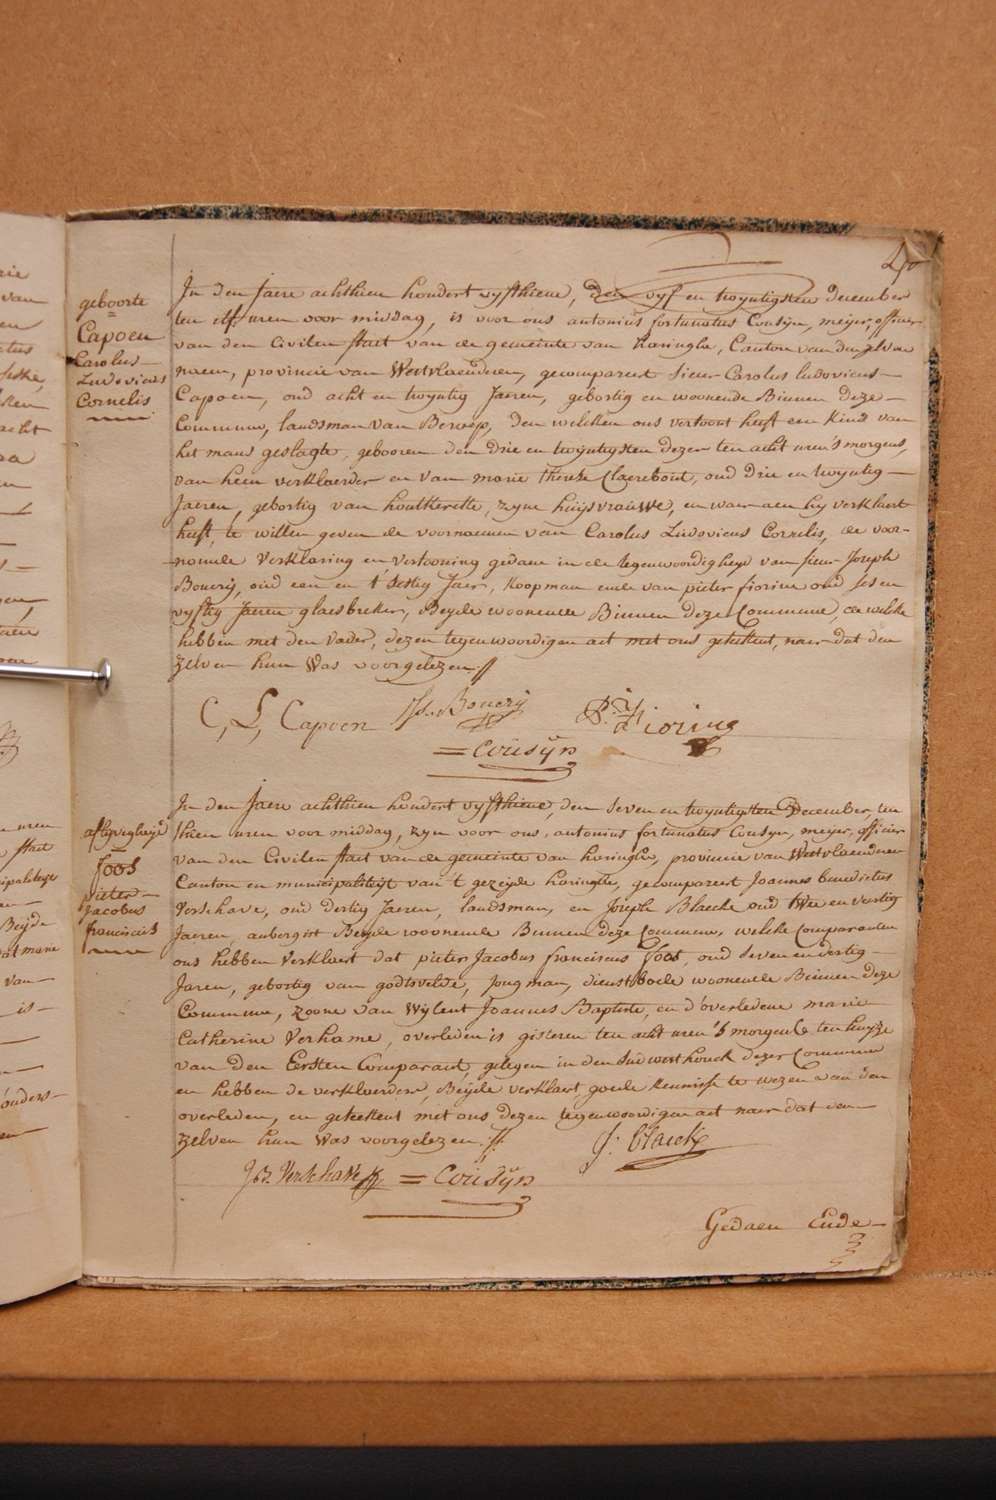 40
geboorte
=
Capoen
Carolus
Ludovicus
Cornelis
In den Jaere achthien hondert vyfthiene, den vyf en twyntigsten december
ten elf uren voor middag, is voor ons antonius fortunatus Cousyn, meyer, officier
van den Civilen staet van de gemeente van haringhe, Canton van den zelven
naem, provincie van Westvlaenderen, gecompareert sieur Carolus ludovicus
Capoen, oud acht en twyntig Jaeren, gebortig en woonende Binnen deze
Commune, landsman van Beroep, den welcken ons vertoont heeft een Kind van
het mans geslagte, gebooren den drie en twyntigsten dezer ten acht uren 's morgens,
van hem verklaerder en van marie therese Claerebout, oud drie en twyntig
Jaeren, gebortig van houtkercke, zyne huysvrauwe, en waer aen hy verklaert
heeft, te willen geven de voornaemen van Carolus Ludovicus Cornelis, de voor-
noemde verklaring en vertooning gedaen in de tegenwoordigheyd van sieur Joseph
Bouerij, oud een en t'sestig Jaer, Koopman ende van pieter fiorine oud ses en
vyftig Jaeren glaesbreker, Beyde woonende Binnen deze Commune, de welke
hebben met den vader, dezen tegenwoordigen act met ons geteekent, naer dat den
zelven hun Was voorgelezen //
C, L, Capoen Js. Bouerij P: J: fiorine
= Cousijn
aflyvigheyd
=
Joos
pieter
Jacobus
franciscus
In den Jaere achthien hondert vyfthiene, den seven en twyntigsten December, ten
thien uren voor middag, zyn voor ons, antonius fortunatus Cousyn, meyer, officier
van den Civilen staet van de gemeente van haringhe, provincie van Westvlaenderen
Canton en municipaliteyt van 't gezeyde haringhe, gecompareert Joannes benedictus
Verschave, oud dertig Jaeren, landsman, en Joseph Blaecke oud twee en veertig
Jaeren, aubergist Beyde woonende Binnen deze Commune, welke Comparanten
ons hebben verklaert dat pieter Jacobus franciscus Joos, oud seven en dertig
Jaren, gebortig van godtsvelde, Jongman, dienstbode woonende Binnen deze
Commune, zoone van wylent Joannes Baptiste, en d'overledene marie
Catherine Verhame, overleden is gisteren ten acht uren 's morgens ten huyze
van den Eersten Comparant, gelegen in den suidwesthouck dezer Commune
en hebben de verklaerders, Beyde verklaert goede Kennisse te wezen van den
overleden, en geteekent met ons dezen tegenwoordigen act naer dat den
zelven hun Was voorgelezen. //
J: blaecke
J:B: Verschave = Cousijn
Gedaen Ende